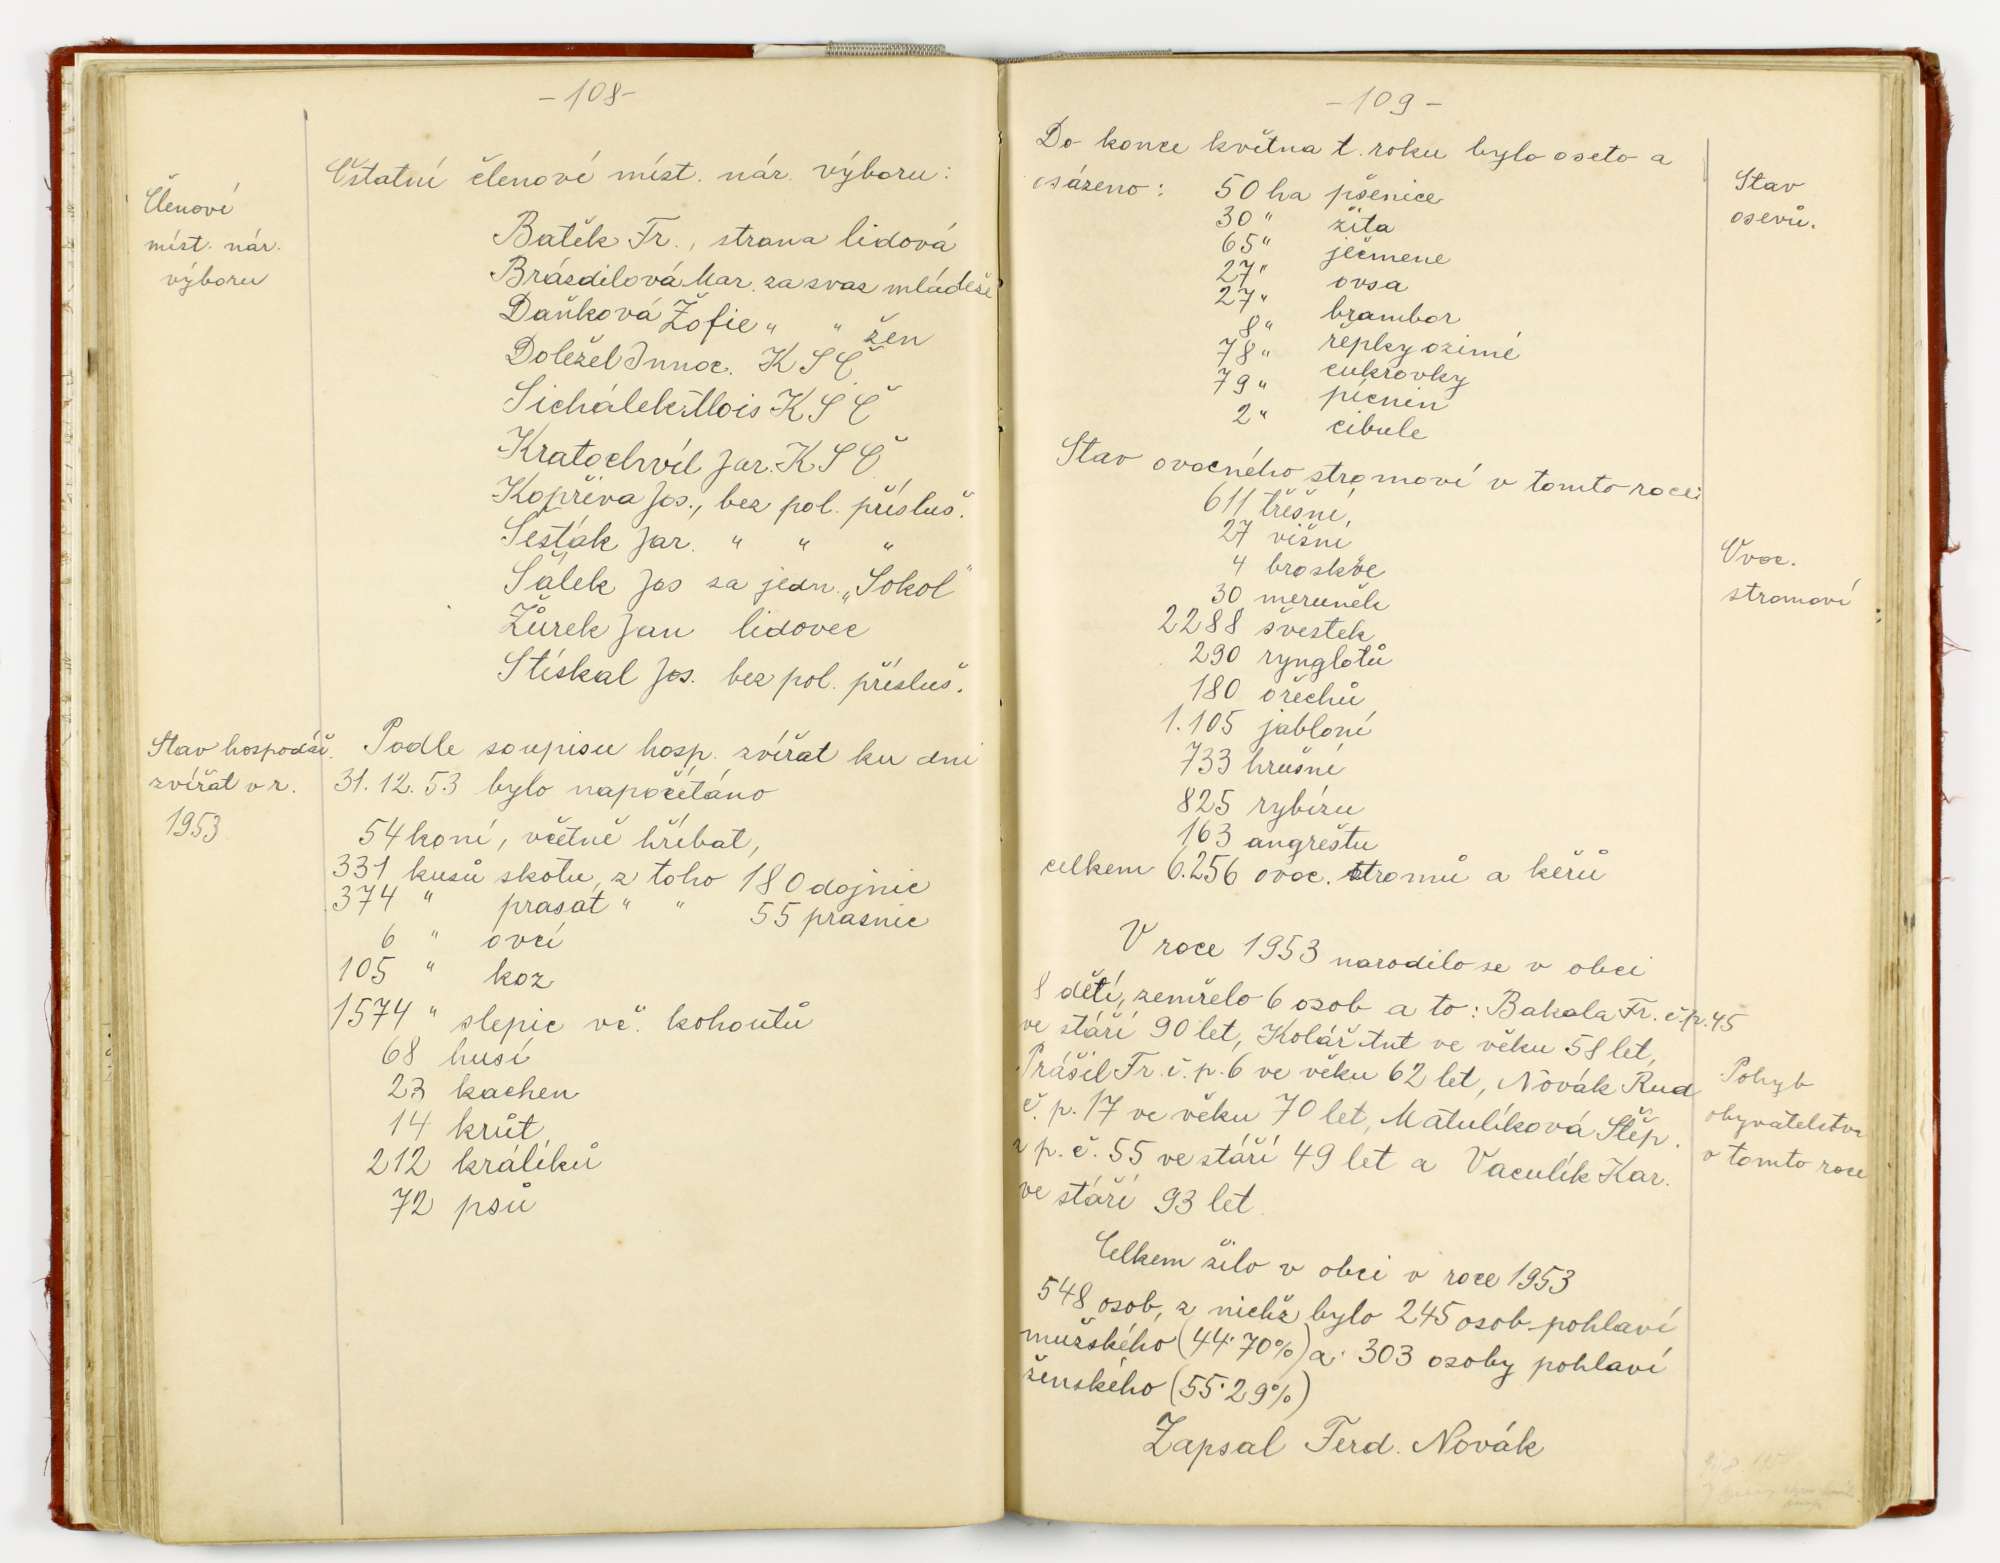 -108-
Členové
míst. nár.
výboru
Ostatní členové míst. nár. výboru:
Batěk Fr., strana lidová
Brázdilová Mar. za svaz mládeže
Daňková Žofie " " žen
Doležel Innoc. KSČ
Sichálek Alois KSČ
Kratochvíl Jar. KSČ
Kopřiva Jos., bez pol. přísluš.
Šesták Jar. " " "
Šálek Jos za jedn. „Sokol"
Žůrek Jan lidovec
Stískal Jos. bez pol. přísluš.
Stav hospodář.
zvířat v r.
1953
Podle soupisu hosp. zvířat ku dni
31. 12. 53 bylo napočítáno
54 koní, včetně hříbat,
331 kusů skotu, z toho 180 dojnic
374 " prasat " " 55 prasnic
6 " ovcí
105 " koz
1574 " slepic vč. kohoutů
68 husí
23 kachen
14 krůt
212 králíků
72 psů
-109-
Do konce května t. roku bylo oseto a
osázeno: 50 ha pšenice
30 " žita
65 " ječmene
27 " ovsa
27 " brambor
8 " řepky ozimé
78 " cukrovky
79 " pícnin
2 " cibule
Stav
osevů.
Stav ovocného stromoví v tomto roce:
611 třešní,
27 višní
4 broskve
30 meruněk
2288 švestek
290 rynglotů
180 ořechů
1.105 jabloní
733 hrušní
825 rybízu
163 angreštu
celkem 6.256 ovoc. stromů a keřů
Ovoc.
stromoví
V roce 1953 narodilo se v obci
8 dětí, zemřelo 6 osob a to: Bakala Fr. č.p. 45
ve stáří 90 let, Kolář Ant ve věku 58 let,
Prášil Fr. č. p. 6 ve věku 62 let, Novák Rud
č. p. 17 ve věku 70 let, Matulíková Štěp.
z p. č. 55 ve stáří 49 let a Vaculík Kar.
ve stáří 93 let.
Pohyb
obyvatelstva
v tomto roce
Celkem žilo v obci v roce 1953
548 osob, z nichž bylo 245 osob pohlaví
mužského (44·70%) a 303 osoby pohlaví
ženského (55·29%)
Zapsal Ferd. Novák